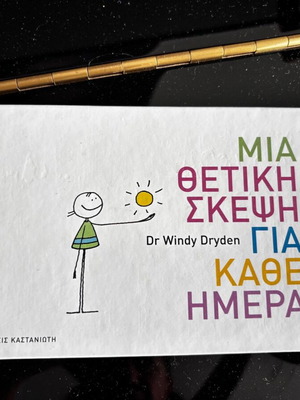 ΜΙΑ
ΘΕΤΙΚΗ
ΣΚΕΨΗ
Dr Windy Dryden ΓΙΑ
ΚΑΘΕ
ΗΜΕΡΑ
ΚΑΣΤΑΝΙΩΤΗ